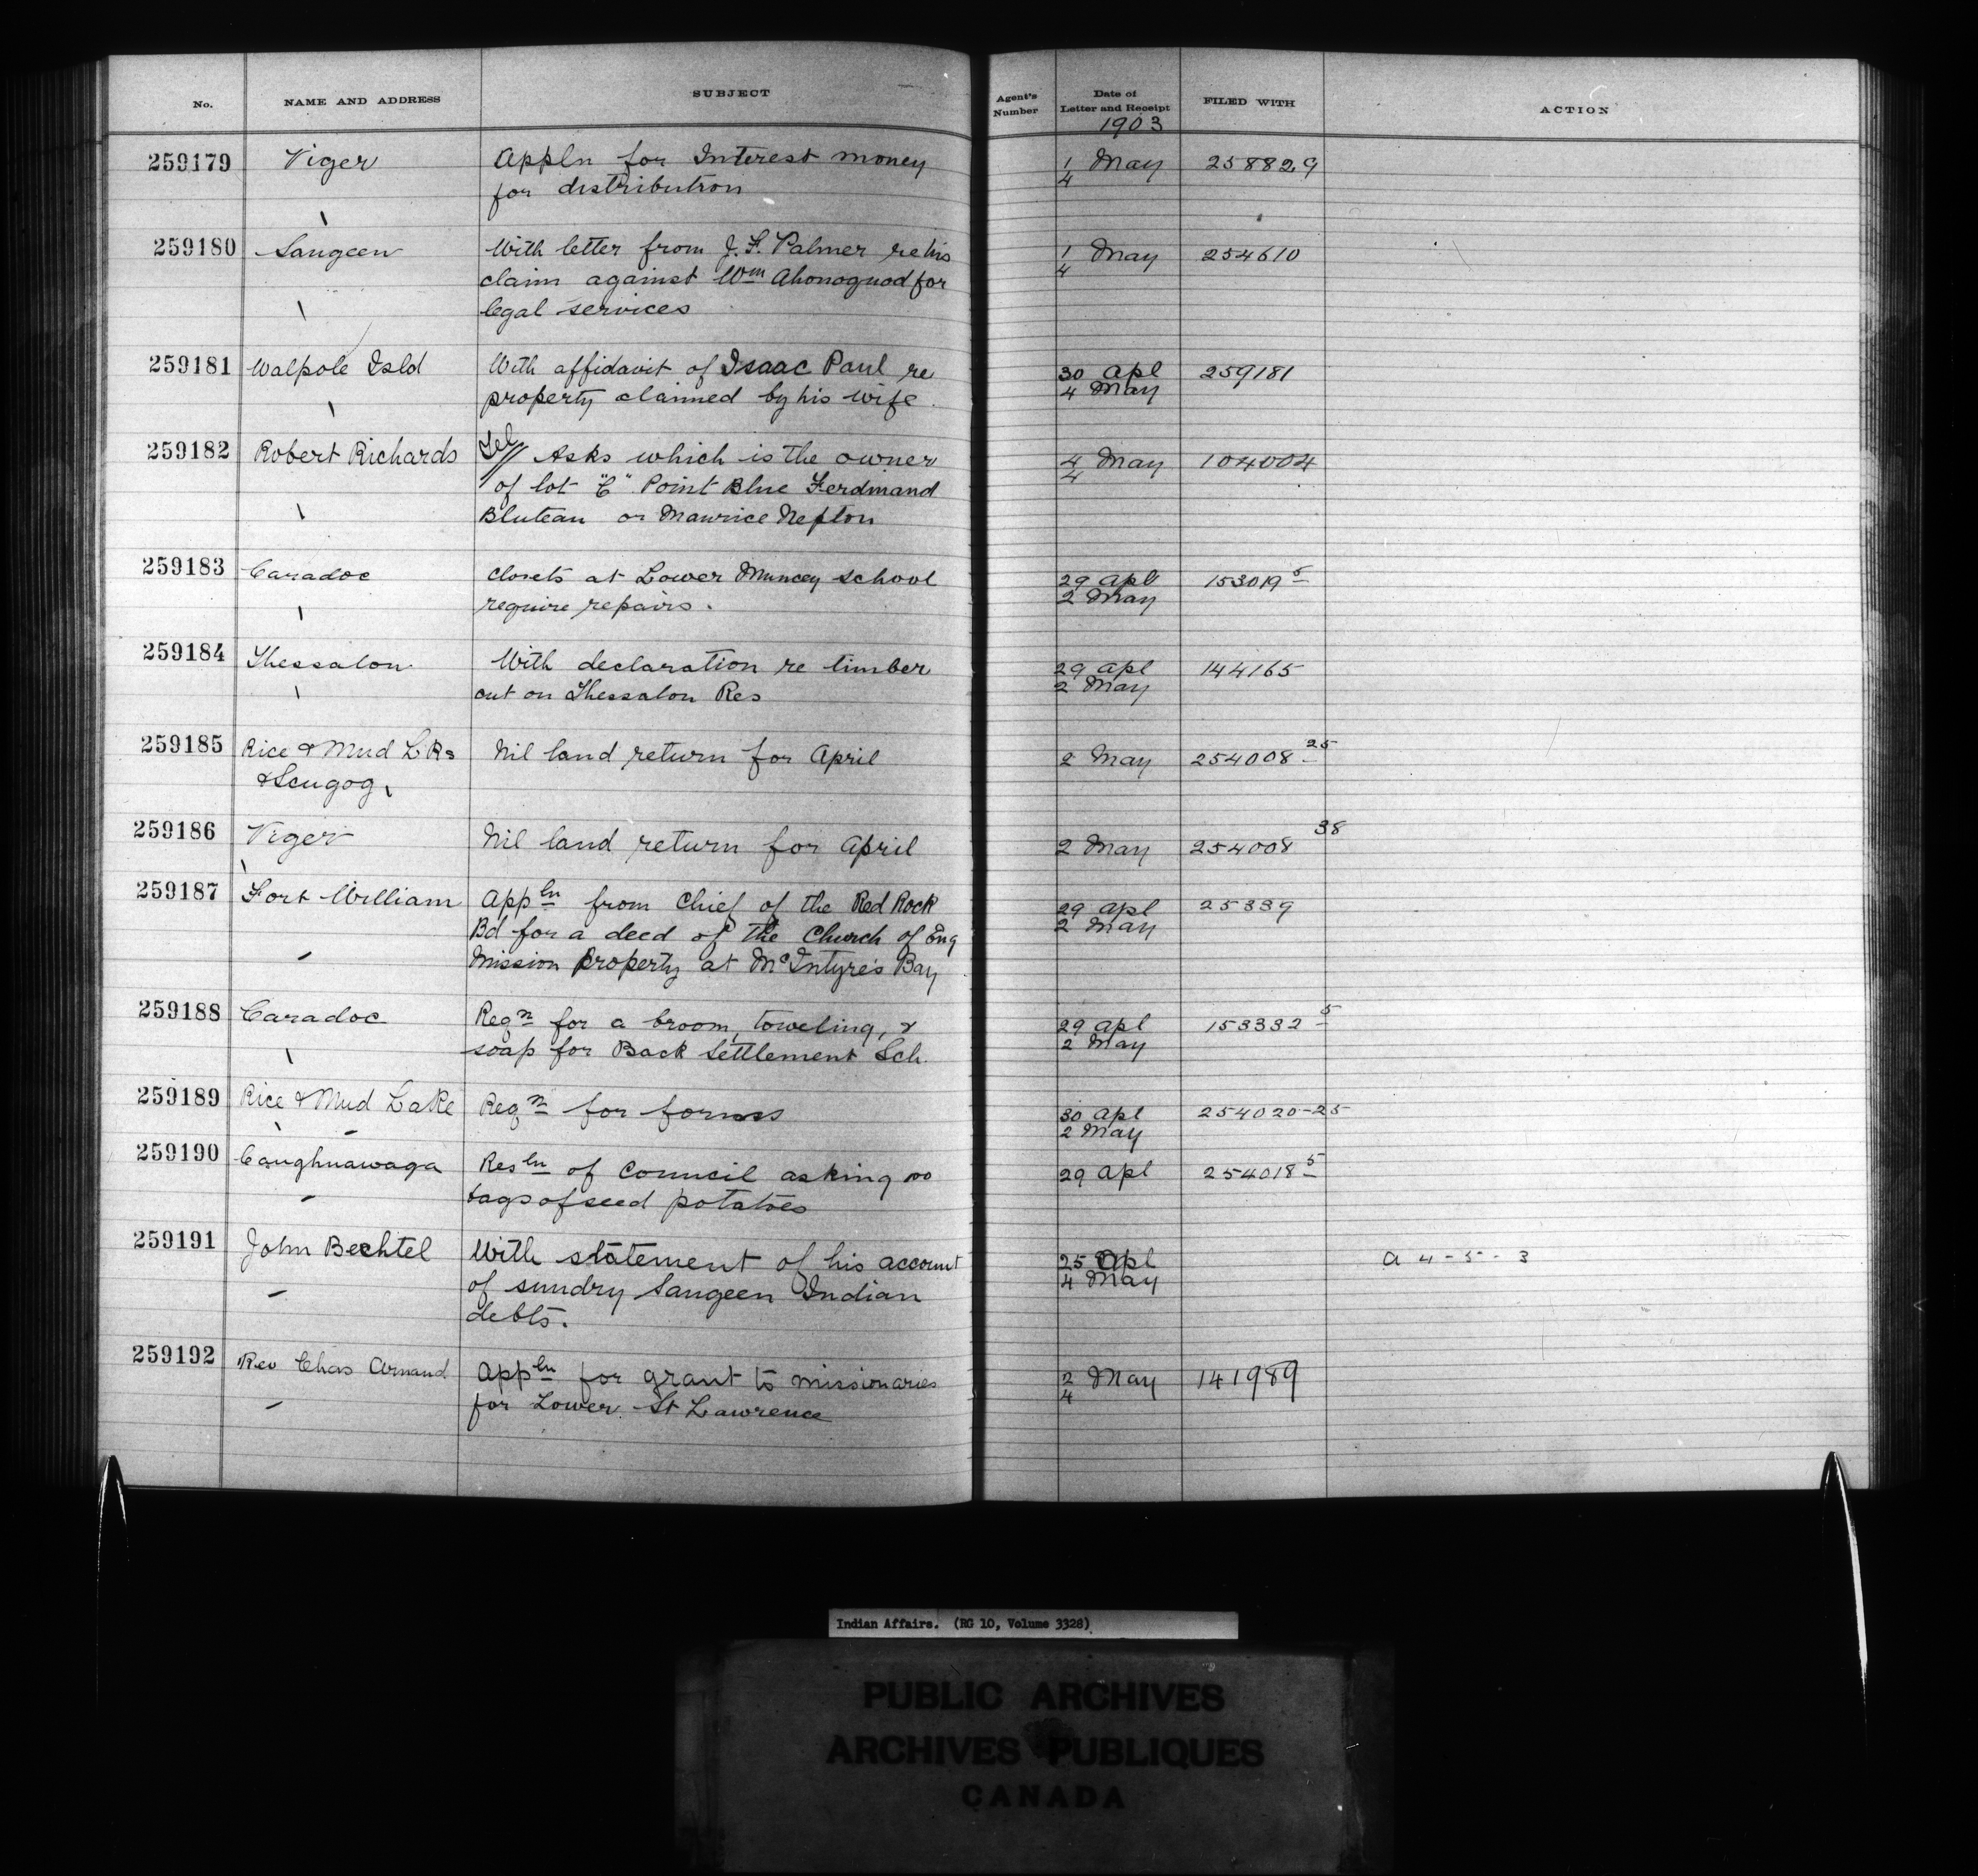 No. NAME AND ADDRESS SUBJECT Agent's Number Date of Letter and Receipt FILED WITH ACTION
1903
259179 Viger Appln for Interest money 1/4 May 258829
for distribution
259180 Saugeen With letter from J. F. Palmer re his 1/4 May 254610
claim against Wm Ahonoquod for
legal services
259181 Walpole Isld With affidavit of Isaac Paul re 30 Apl 259181
property claimed by his wife. 4 May
259182 Robert Richards Tel// Asks which is the owner 4/4 May 104004
of lot "C" Point Blue Ferdinand
Bluteau or Maurice Nepton
259183 Caradoc Closets at Lower Muncey school 29 Apl 153019 5
require repairs. 2 May
259184 Thessalon With declaration re timber 29 Apl 144165
cut on Thessalon Res 2 May
259185 Rice & Mud LKs Nil land return for April 2 May 254008 25
& Scugog
259186 Viger Nil land return for April 2 May 254008 38
259187 Fort William Appln from Chief of the Red Rock 29 Apl 25339
Bd for a deed of the Church of Eng 2 May
Mission property at McIntyre's Bay
259188 Caradoc Reqn for a broom, toweling, & 29 Apl 153332 5
soap for Back Settlement Sch. 2 May
259189 Rice & Mud Lake Reqn for forms 30 Apl 254020-25
2 May
259190 Caughnawaga Resln of Council asking 100 29 Apl 254018 5
bags of seed potatoes
259191 John Bechtel With statement of his account 25 Apl A 4-5-3
of sundry Saugeen Indian 4 May
debts.
259192 Rev Chas Arnaud Appln for grant to missionaries 2/4 May 141989
for Lower St Lawrence
Indian Affairs. (RG 10, Volume 3328)
PUBLIC ARCHIVES
ARCHIVES PUBLIQUES
CANADA